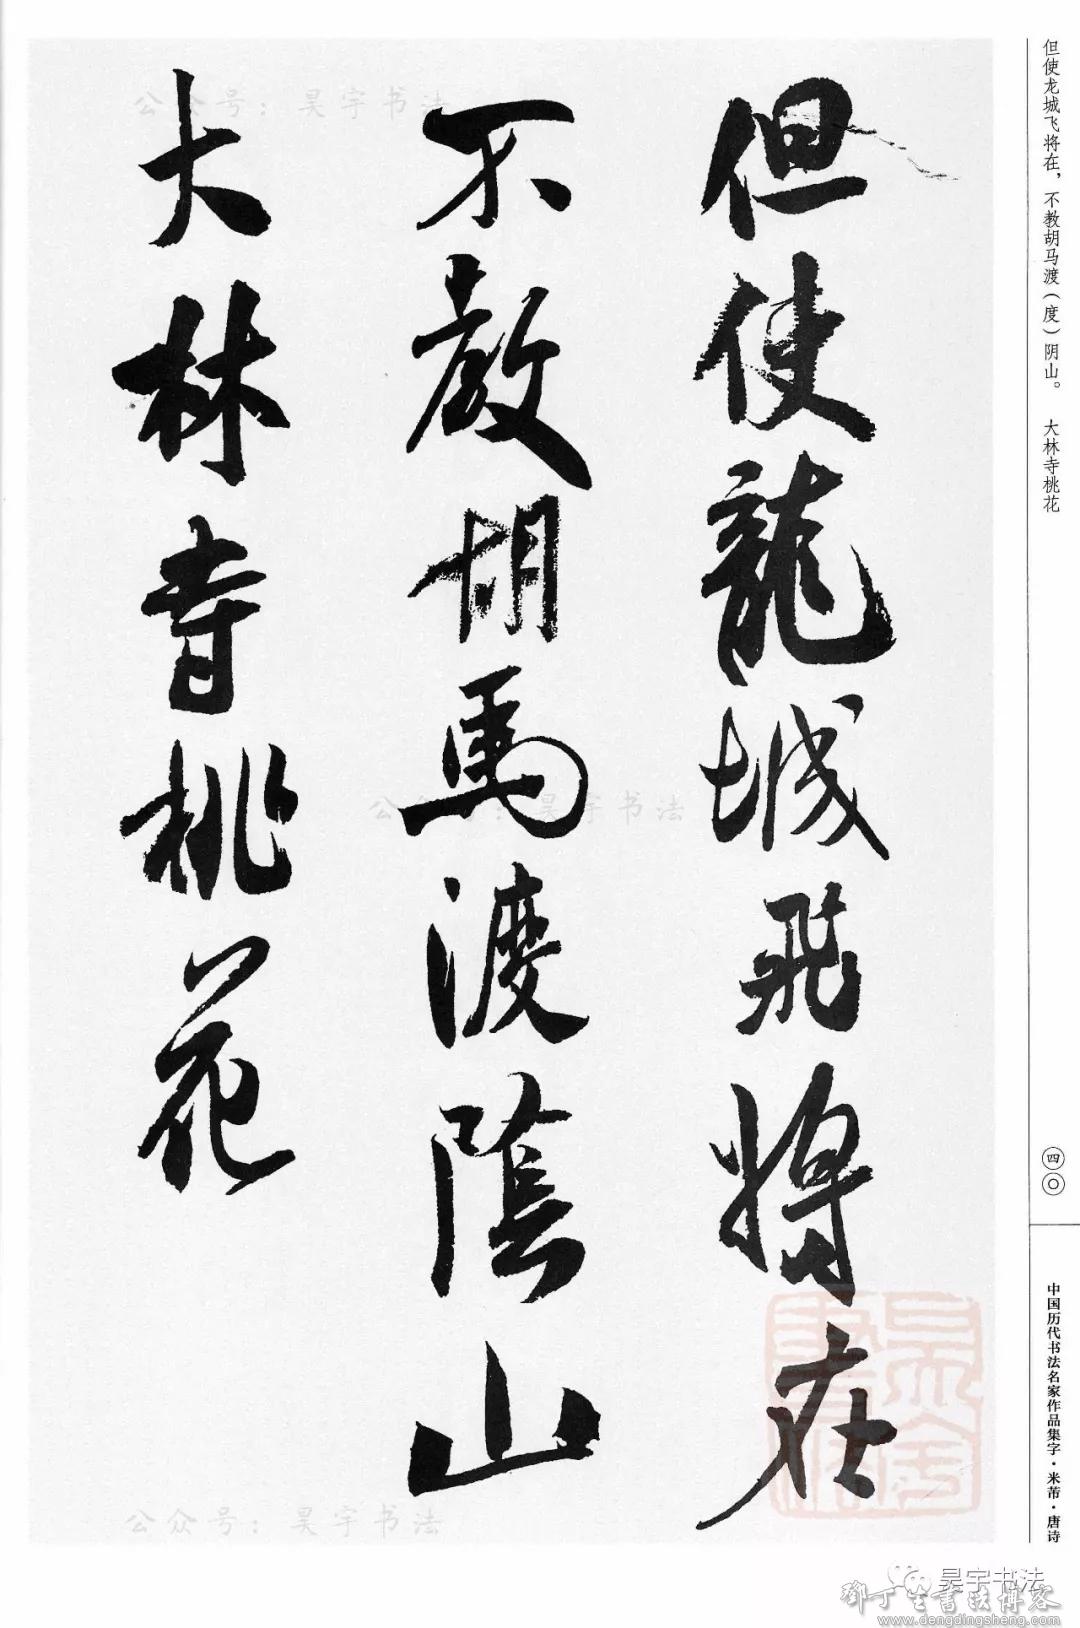 但使龍城飛將在
不教胡馬渡陰山
大林寺桃花
但使龙城飞将在，不教胡马渡（度）阴山。 大林寺桃花
四〇
中国历代书法名家作品集字·米芾·唐诗
公众号：昊宇书法
公众号：昊宇书法
公众号：昊宇书法
昊宇书法
鄧丁生書法博客
www.dengdingsheng.com